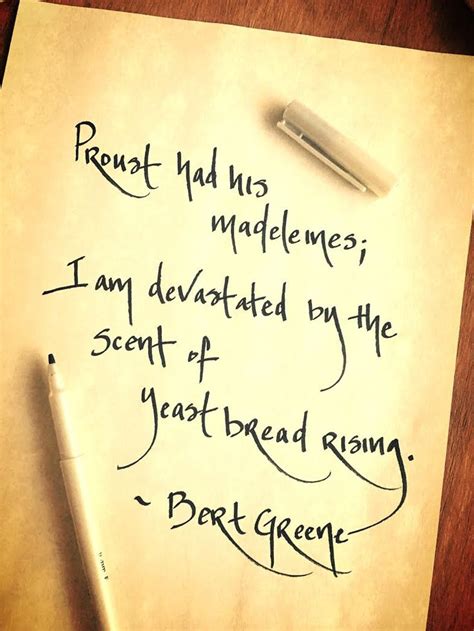 Proust had his
madeleines;
I am devastated by the
scent of
yeast bread rising.
~ Bert Greene